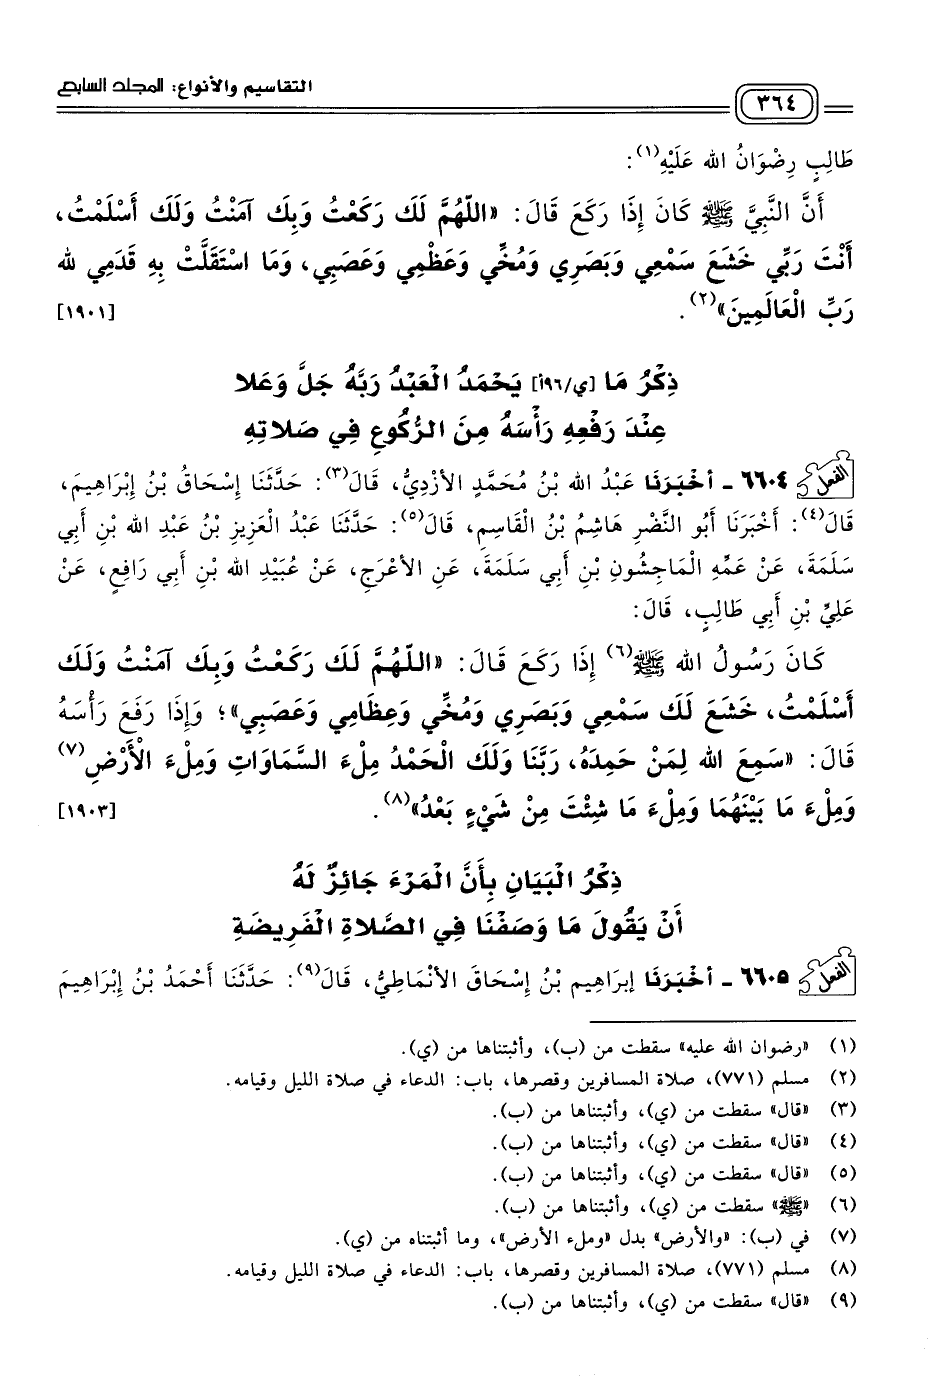 التقاسيم والأنواع: المجلد السابع
٣٦٤
طَالِبٍ رِضْوَانُ الله عَلَيْهِ(١):
أَنَّ النَّبِيَّ ﷺ كَانَ إِذَا رَكَعَ قَالَ: «اللَّهُمَّ لَكَ رَكَعْتُ وَبِكَ آمَنْتُ وَلَكَ أَسْلَمْتُ،
أَنْتَ رَبِّي خَشَعَ سَمْعِي وَبَصَرِي وَمُخِّي وَعَظْمِي وَعَصَبِي، وَمَا اسْتَقَلَّتْ بِهِ قَدَمِي لله
رَبِّ الْعَالَمِينَ»(٢). [١٩٠١]
ذِكْرُ مَا [ي/٩٦أ] يَحْمَدُ الْعَبْدُ رَبَّهُ جَلَّ وَعَلا
عِنْدَ رَفْعِهِ رَأْسَهُ مِنَ الرُّكُوعِ فِي صَلاتِهِ
الفعل ٦٦٠٤ - أخْبَرَنَا عَبْدُ الله بْنُ مُحَمَّدٍ الأزْدِيُّ، قَالَ(٣): حَدَّثَنَا إِسْحَاقُ بْنُ إِبْرَاهِيمَ،
قَالَ(٤): أَخْبَرَنَا أَبُو النَّضْرِ هَاشِمُ بْنُ الْقَاسِمِ، قَالَ(٥): حَدَّثَنَا عَبْدُ الْعَزِيزِ بْنُ عَبْدِ الله بْنِ أَبِي
سَلَمَةَ، عَنْ عَمِّهِ الْمَاجِشُونِ بْنِ أَبِي سَلَمَةَ، عَنِ الأعْرَجِ، عَنْ عُبَيْدِ الله بْنِ أَبِي رَافِعٍ، عَنْ
عَلِيِّ بْنِ أَبِي طَالِبٍ، قَالَ:
كَانَ رَسُولُ الله ﷺ(٦) إِذَا رَكَعَ قَالَ: «اللَّهُمَّ لَكَ رَكَعْتُ وَبِكَ آمَنْتُ وَلَكَ
أَسْلَمْتُ، خَشَعَ لَكَ سَمْعِي وَبَصَرِي وَمُخِّي وَعِظَامِي وَعَصَبِي»؛ وَإِذَا رَفَعَ رَأْسَهُ
قَالَ: «سَمِعَ الله لِمَنْ حَمِدَهُ، رَبَّنَا وَلَكَ الْحَمْدُ مِلْءَ السَّمَاوَاتِ وَمِلْءَ الْأَرْضِ(٧)
وَمِلْءَ مَا بَيْنَهُمَا وَمِلْءَ مَا شِئْتَ مِنْ شَيْءٍ بَعْدُ»(٨). [١٩٠٣]
ذِكْرُ الْبَيَانِ بِأَنَّ الْمَرْءَ جَائِزٌ لَهُ
أَنْ يَقُولَ مَا وَصَفْنَا فِي الصَّلاةِ الْفَرِيضَةِ
الفعل ٦٦٠٥ - أخْبَرَنَا إبرَاهِيم بْنُ إِسْحَاقَ الأنْمَاطِيُّ، قَالَ(٩): حَدَّثَنَا أَحْمَدُ بْنُ إِبْرَاهِيمَ
(١) «رضوان الله عليه» سقطت من (ب)، وأثبتناها من (ي).
(٢) مسلم (٧٧١)، صلاة المسافرين وقصرها، باب: الدعاء في صلاة الليل وقيامه.
(٣) «قال» سقطت من (ي)، وأثبتناها من (ب).
(٤) «قال» سقطت من (ي)، وأثبتناها من (ب).
(٥) «قال» سقطت من (ي)، وأثبتناها من (ب).
(٦) «ﷺ» سقطت من (ي)، وأثبتناها من (ب).
(٧) في (ب): «والأرض» بدل «وملء الأرض»، وما أثبتناه من (ي).
(٨) مسلم (٧٧١)، صلاة المسافرين وقصرها، باب: الدعاء في صلاة الليل وقيامه.
(٩) «قال» سقطت من (ي)، وأثبتناها من (ب).